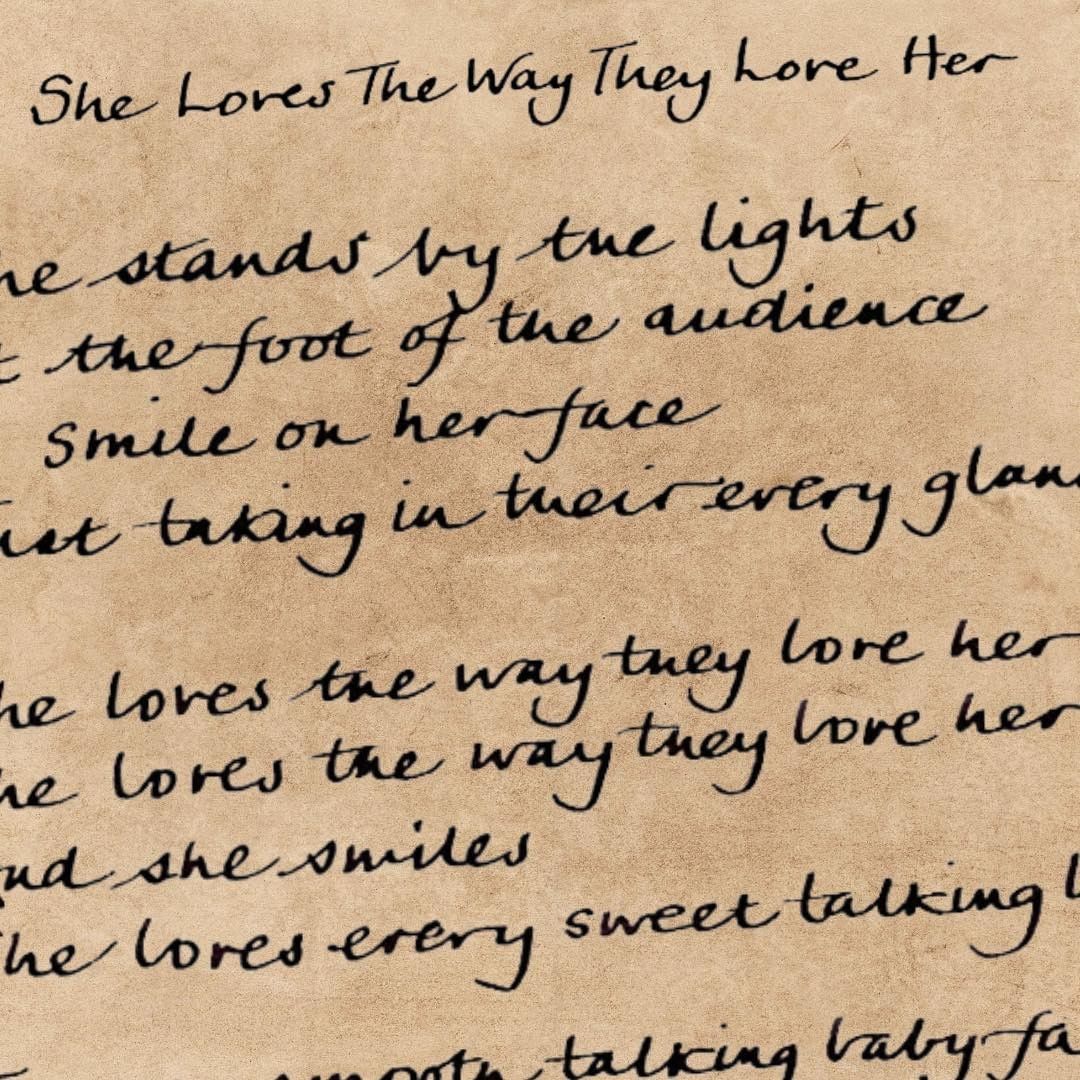 She Loves The Way They Love Her
he stands by the lights
t the foot of the audience
Smile on her face
ust taking in their every glan
he loves the way they love her
he loves the way they love her
nd she smiles
She loves every sweet talking
talking baby fa